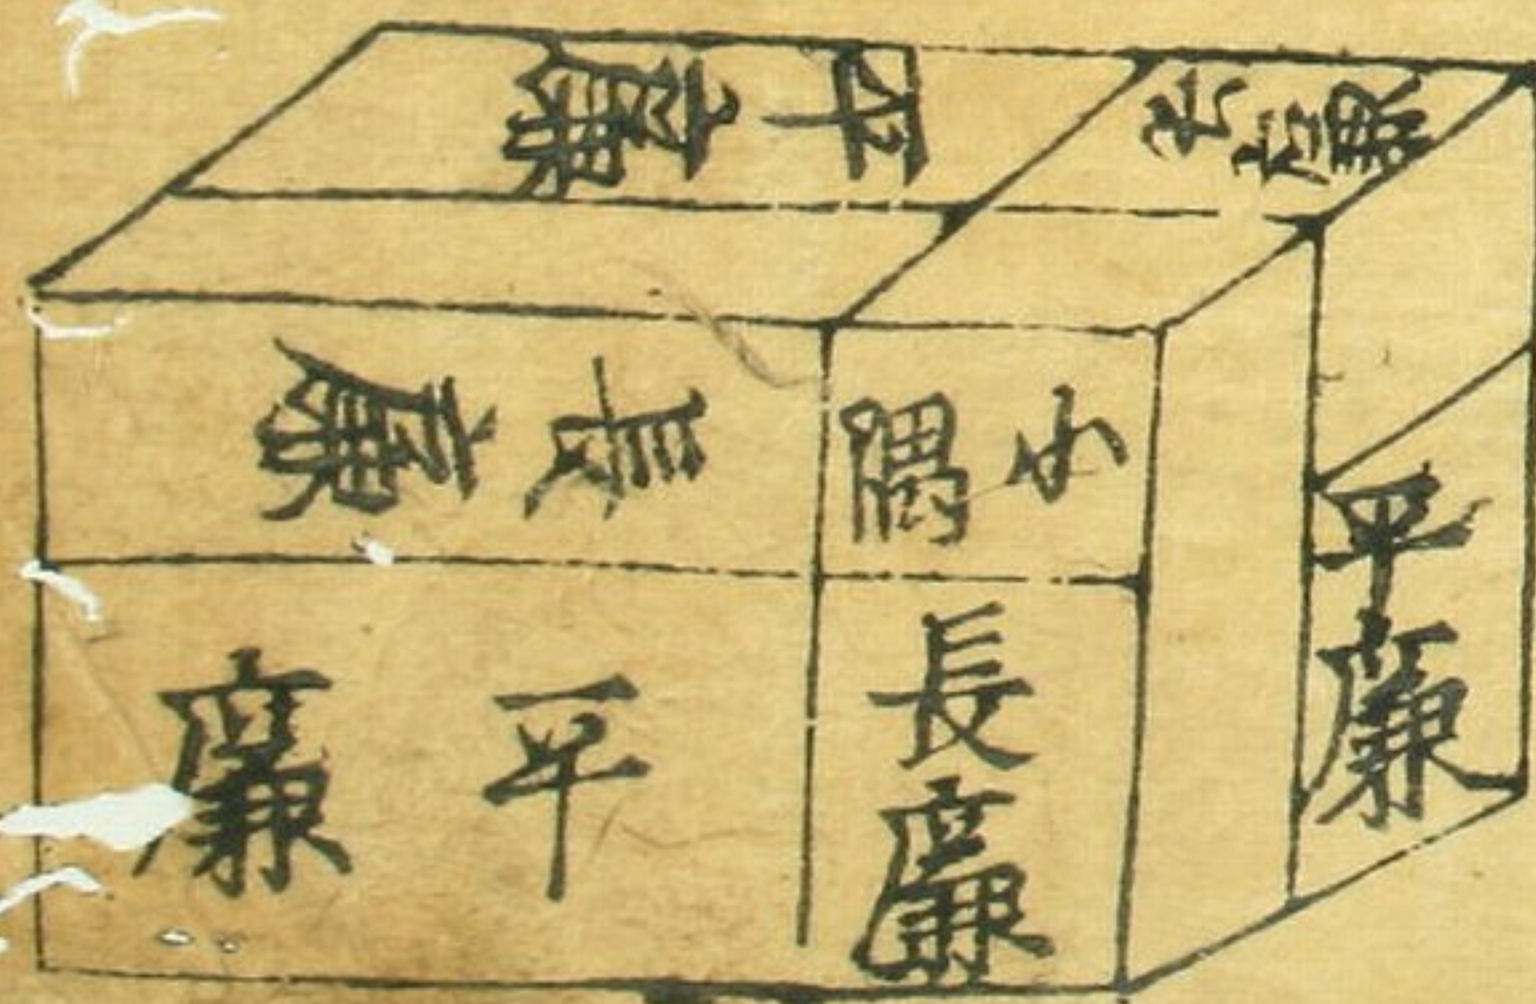 平廉
长廉
長廉
小隅
平廉
長廉
平廉